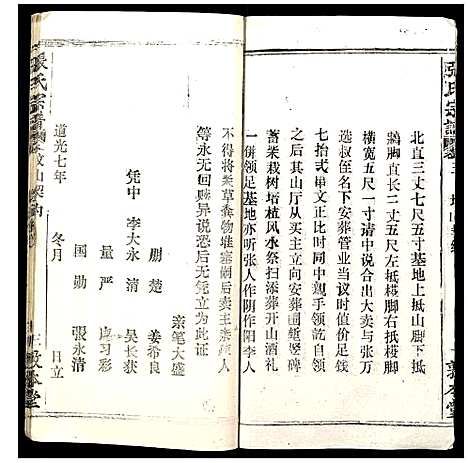 張氏宗譜
北直三丈七尺五寸墓地上抵山脚下抵
鵝脚直长二丈五尺左抵楼脚右抵楼脚
横宽五尺一寸请中说合出大卖与张万
选叔侄名下安葬管业当议时值价足钱
七拾弍串文正比时同中亲手领讫自领
之后其山厅从买主立向安葬
蓄禾栽树培植风水祭扫添葬开山酒礼
一併领足基地亦听张人作阴作阳李人
不得将粪草粪物堆塞
等永无回赎异说恐后无凭立为此证
亲笔大盛
朋楚 姜希良
凭中 李大永清 吴长获
量严 习彩
国勋 張永清
道光七年 冬月 日立
張氏宗譜